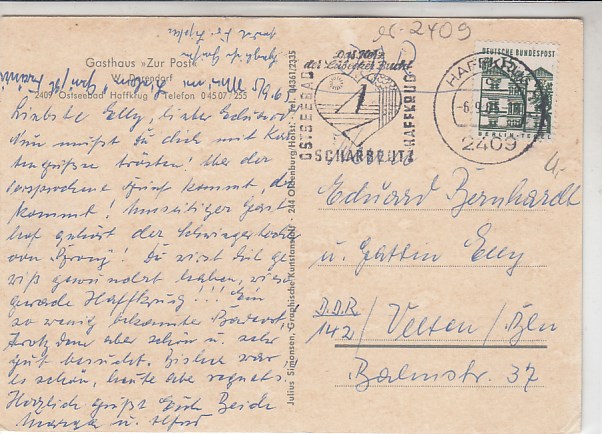 ec-2409
Gasthaus »Zur Post«
W. Dorendorf
2409 Ostseebad Haffkrug / Telefon 0 45 07 / 255
5/9.6
Liebste Elly, lieber Eduard
nun mußt du dich mit Kar
tengrüße trösten! Aber der
versprochene Brief kommt, der
kommt! Umseitiger Gast
hof gehört der Schwiegertochter
von Fr. Du wirst dich ge
wiß gewundert haben, wieso
gerade Haffkrug!!! Ein
so wenig bekannter Badeort,
trotzdem aber schön u. sehr
gut besucht. Bisher war
es schön, heute aber regnets.
Herzlich grüßt Euch Beide
Marga u. Alfred
Julius Simonsen, Graphische Kunstanstalt · 244 Oldenburg/Holst. · Tel. 04361/2335
Das Herz
der Lübecker Bucht
OSTSEEBAD
HAFFKRUG
SCHARBEUTZ
HAFFKRUG
-6.9.
2409
DEUTSCHE BUNDESPOST
BERLIN-TEGEL
4,-
Eduard Bernhardt
u. Gattin Elly
D.D.R.
142 / Velten / Bln
Bahnstr. 37